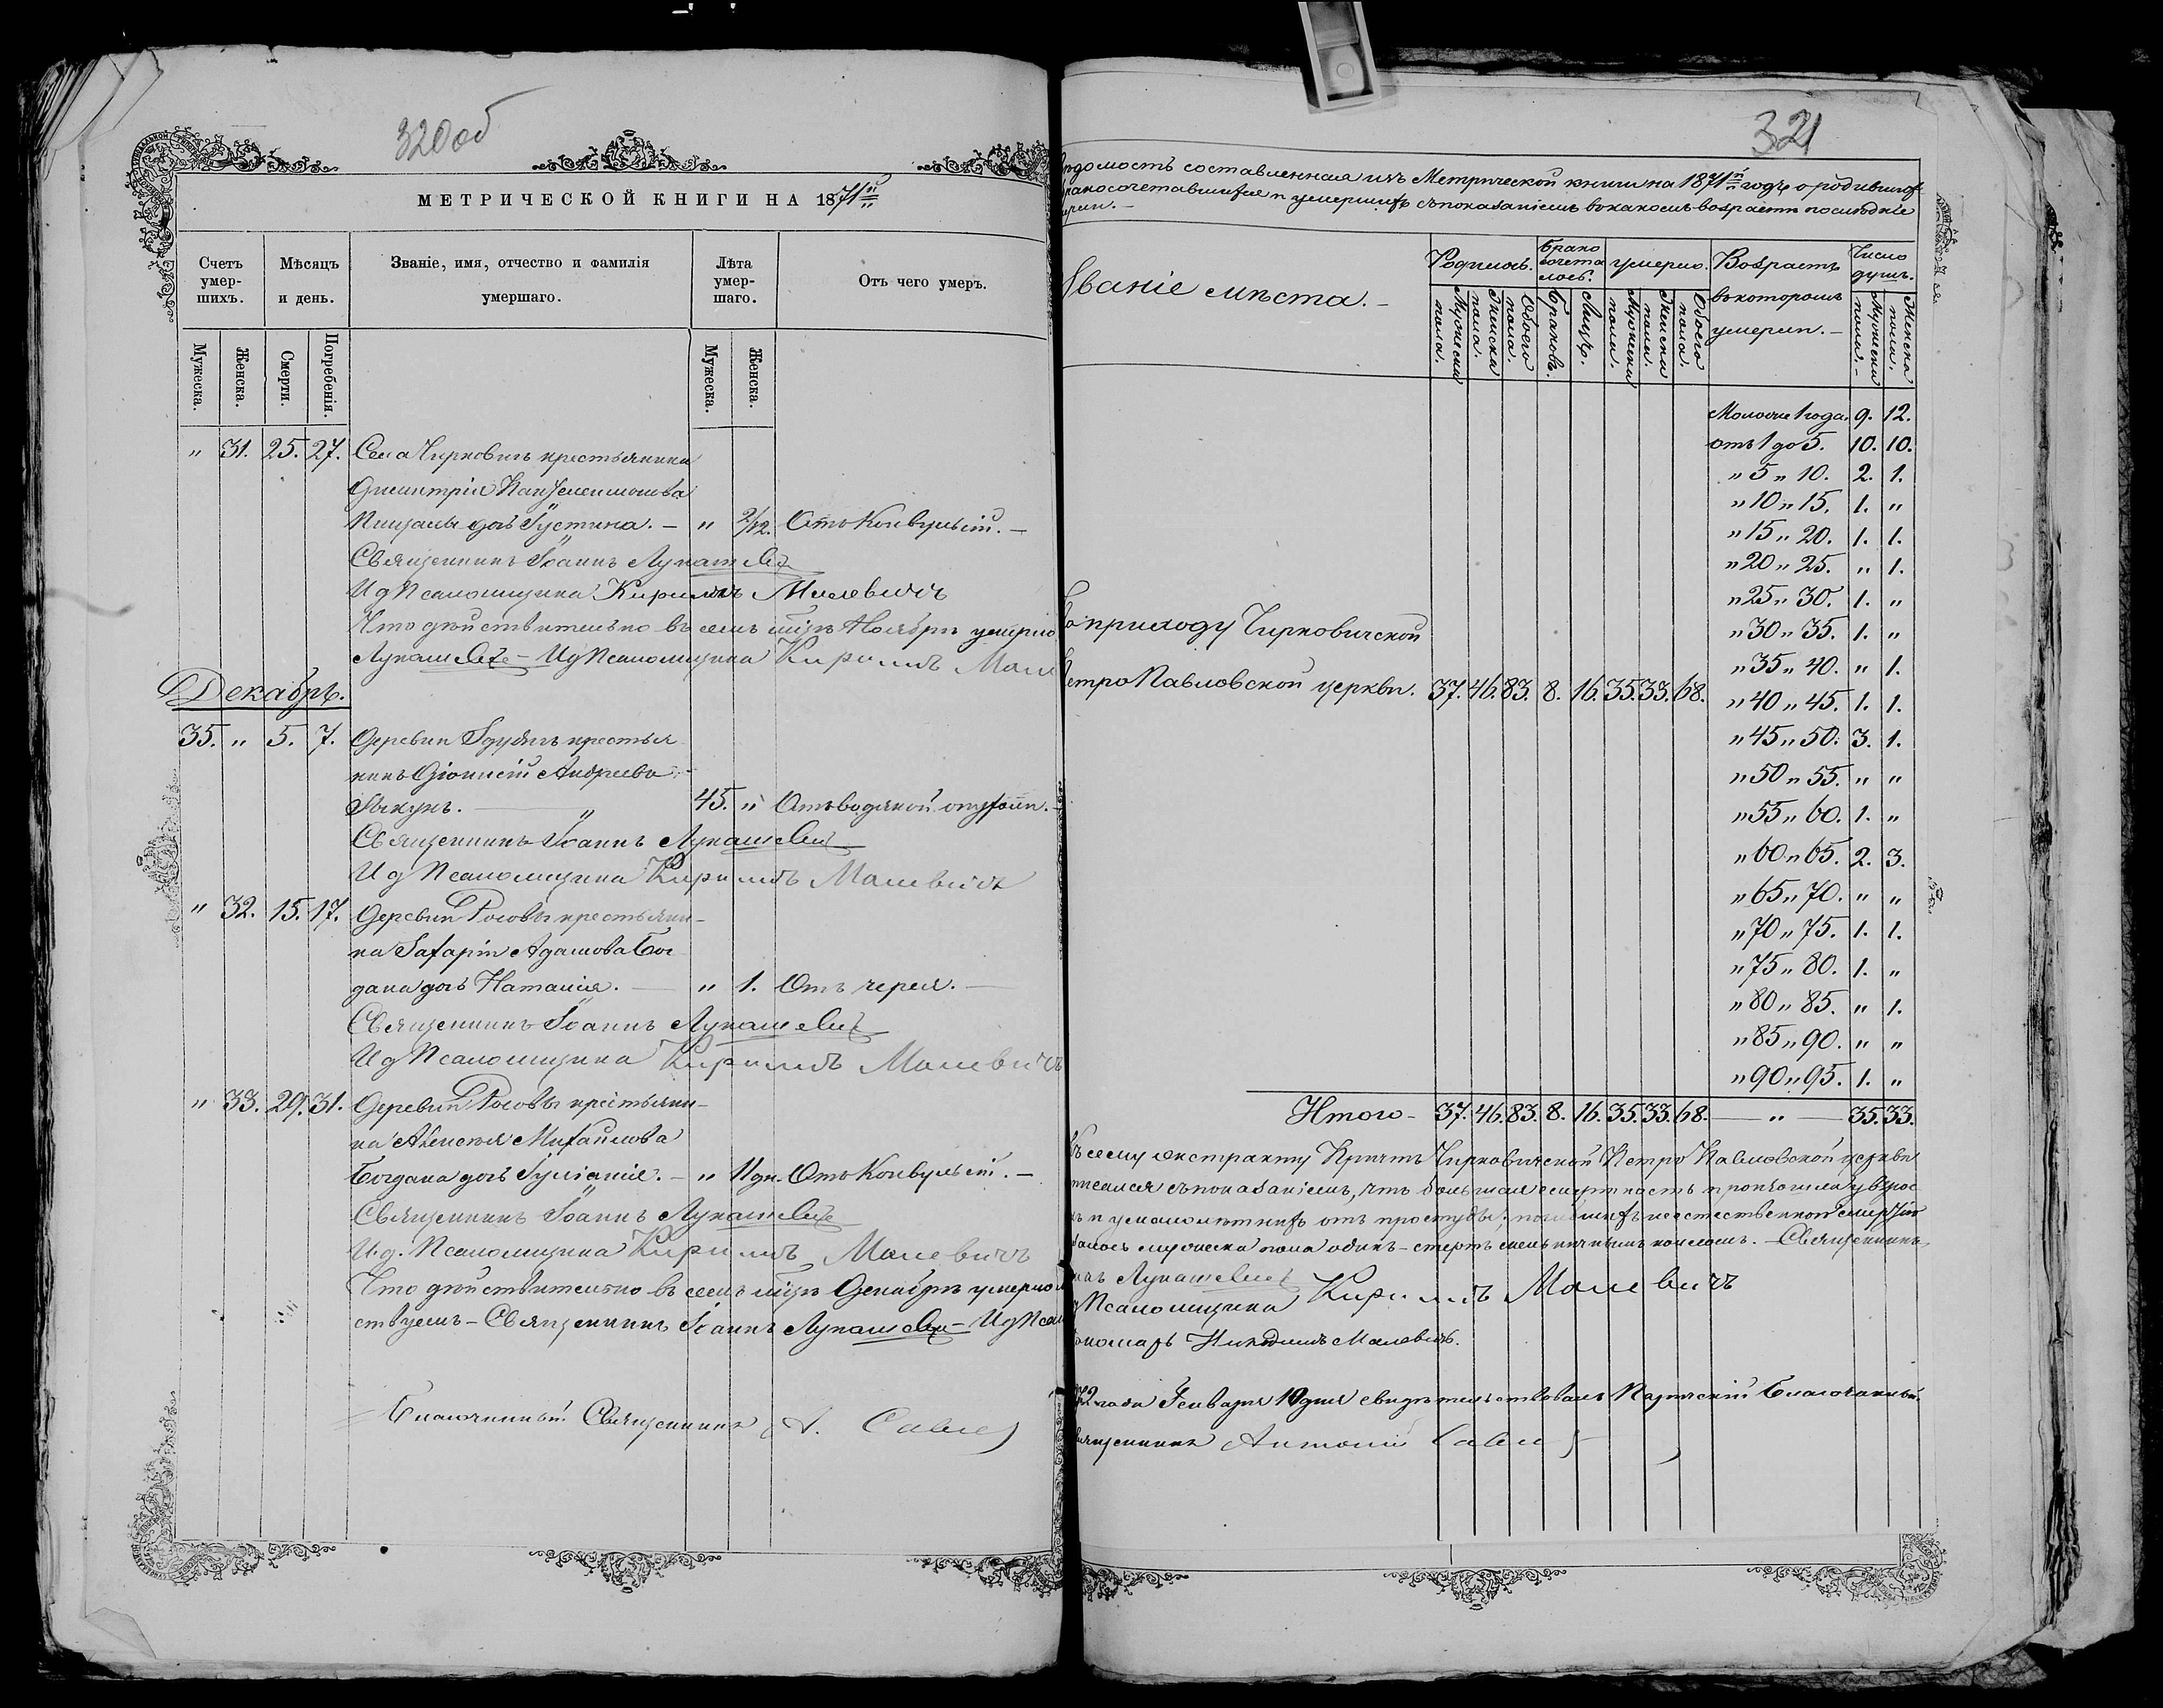 320 об
МЕТРИЧЕСКОЙ КНИГИ НА 1871й
Счетъ умер-шихъ.
Мѣсяцъ и день.
Званіе, имя, отчество и фамилія умершаго.
Лѣта умер-шаго.
Отъ чего умеръ.
Мужеска.
Женска.
Смерти.
Погребенія.
Мужеска.
Женска.
" 31. 25. 27. Села Чирковичъ крестьянина
Димитрія Пантелеимонова
дочь Іустина. — " 2/12. Отъ Конвульсій. —
Священникъ Іоаннъ Лукашевичъ
И д Псаломщика Кириллъ Малевичъ
Что дѣйствительно въ семъ мцѣ Ноябрѣ умерло
Лукашевичъ — И д Псаломщика Кириллъ Мале
Декабрь.
35. " 5. 7. Деревни крестья
нинъ Діонисій Андреевъ
Зыкунъ. — " 45. " Отъ водяной опухоли. —
Священникъ Іоаннъ Лукашевичъ
И д Псаломщика Кириллъ Малевичъ
" 32. 15. 17. Деревни Роговъ крестьяни-
на Захарія Адамова Бог
дана дочь Наталія. — " 1. Отъ черея. —
Священникъ Іоаннъ Лукашевичъ
И д Псаломщика Кириллъ Малевичъ
" 33. 29. 31. Деревни Роговъ крестьяни-
на Алексѣя Михайлова
Богдана дочь Іуліанія. — " 11 дн. Отъ Конвульсій. —
Священникъ Іоаннъ Лукашевичъ
И. д. Псаломщика Кириллъ Малевичъ
Что дѣйствительно въ семъ мцѣ Декабрѣ умерло
ствуемъ — Священникъ Іоаннъ Лукашевичъ — И д Пса
Благочинный Священникъ А. Савич
321
домость составленная изъ Метрической книги на 1871й годъ о родившихся
бракосочетавшихся и умершихъ съ показаніемъ въ какомъ возрастѣ послѣдніе
умерли. —
Званіе мѣста. —
Родилось.
Брако сочета лось.
Умерло.
Возрастъ въ которомъ умерли. —
Число душъ.
Мужеска пола.
Женска пола.
Обоего пола.
Браковъ.
Лицъ.
Мужеска пола.
Женска пола.
Обоего пола.
Мужеска пола. —
Женска пола.
Моложе 1 года. 9. 12.
отъ 1 до 5. 10. 10.
" 5 " 10. 2. 1.
" 10 " 15. 1. "
" 15 " 20. 1. 1.
" 20 " 25. " 1.
" 25 " 30. 1. "
" 30 " 35. 1. "
" 35 " 40. " 1.
" 40 " 45. 1. 1.
" 45 " 50. 3. 1.
" 50 " 55. " "
" 55 " 60. 1. "
" 60 " 65. 2. 3.
" 65 " 70. " "
" 70 " 75. 1. 1.
" 75 " 80. 1. "
" 80 " 85. " 1.
" 85 " 90. " "
" 90 " 95. 1. "
приходу Чирковичской
Петро Павловской церкви. 37. 46. 83. 8. 16. 35. 33. 68.
Итого — 37. 46. 83. 8. 16. 35. 33. 68. — " — 35. 33.
Къ сему экстракту Причтъ Чирковичской Петро Павловской церкви
съ показаніемъ, что большая смертность у взрос
и у малолѣтнихъ отъ простуды; неестественной смертію
мужеска пола одинъ — Священникъ
Лукашевичъ
Псаломщика Кириллъ Малевичъ
Пономарь Никодимъ Малевичъ.
72 года Генваря 10 дня свидѣтельствовалъ Паричскій Благочинный
Священникъ Антоній Савич